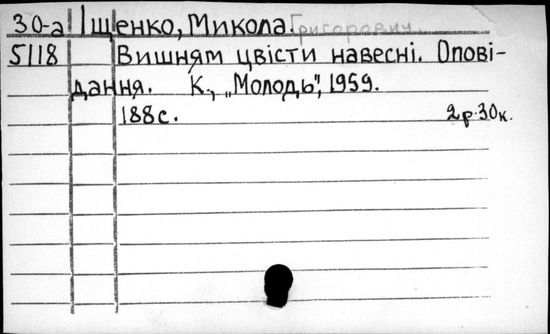 30-а Іщенко, Микола Григорович
5118 Вишням цвісти навесні. Опові-
дання. К., „Молодь", 1959.
188 с. 2р.30к.